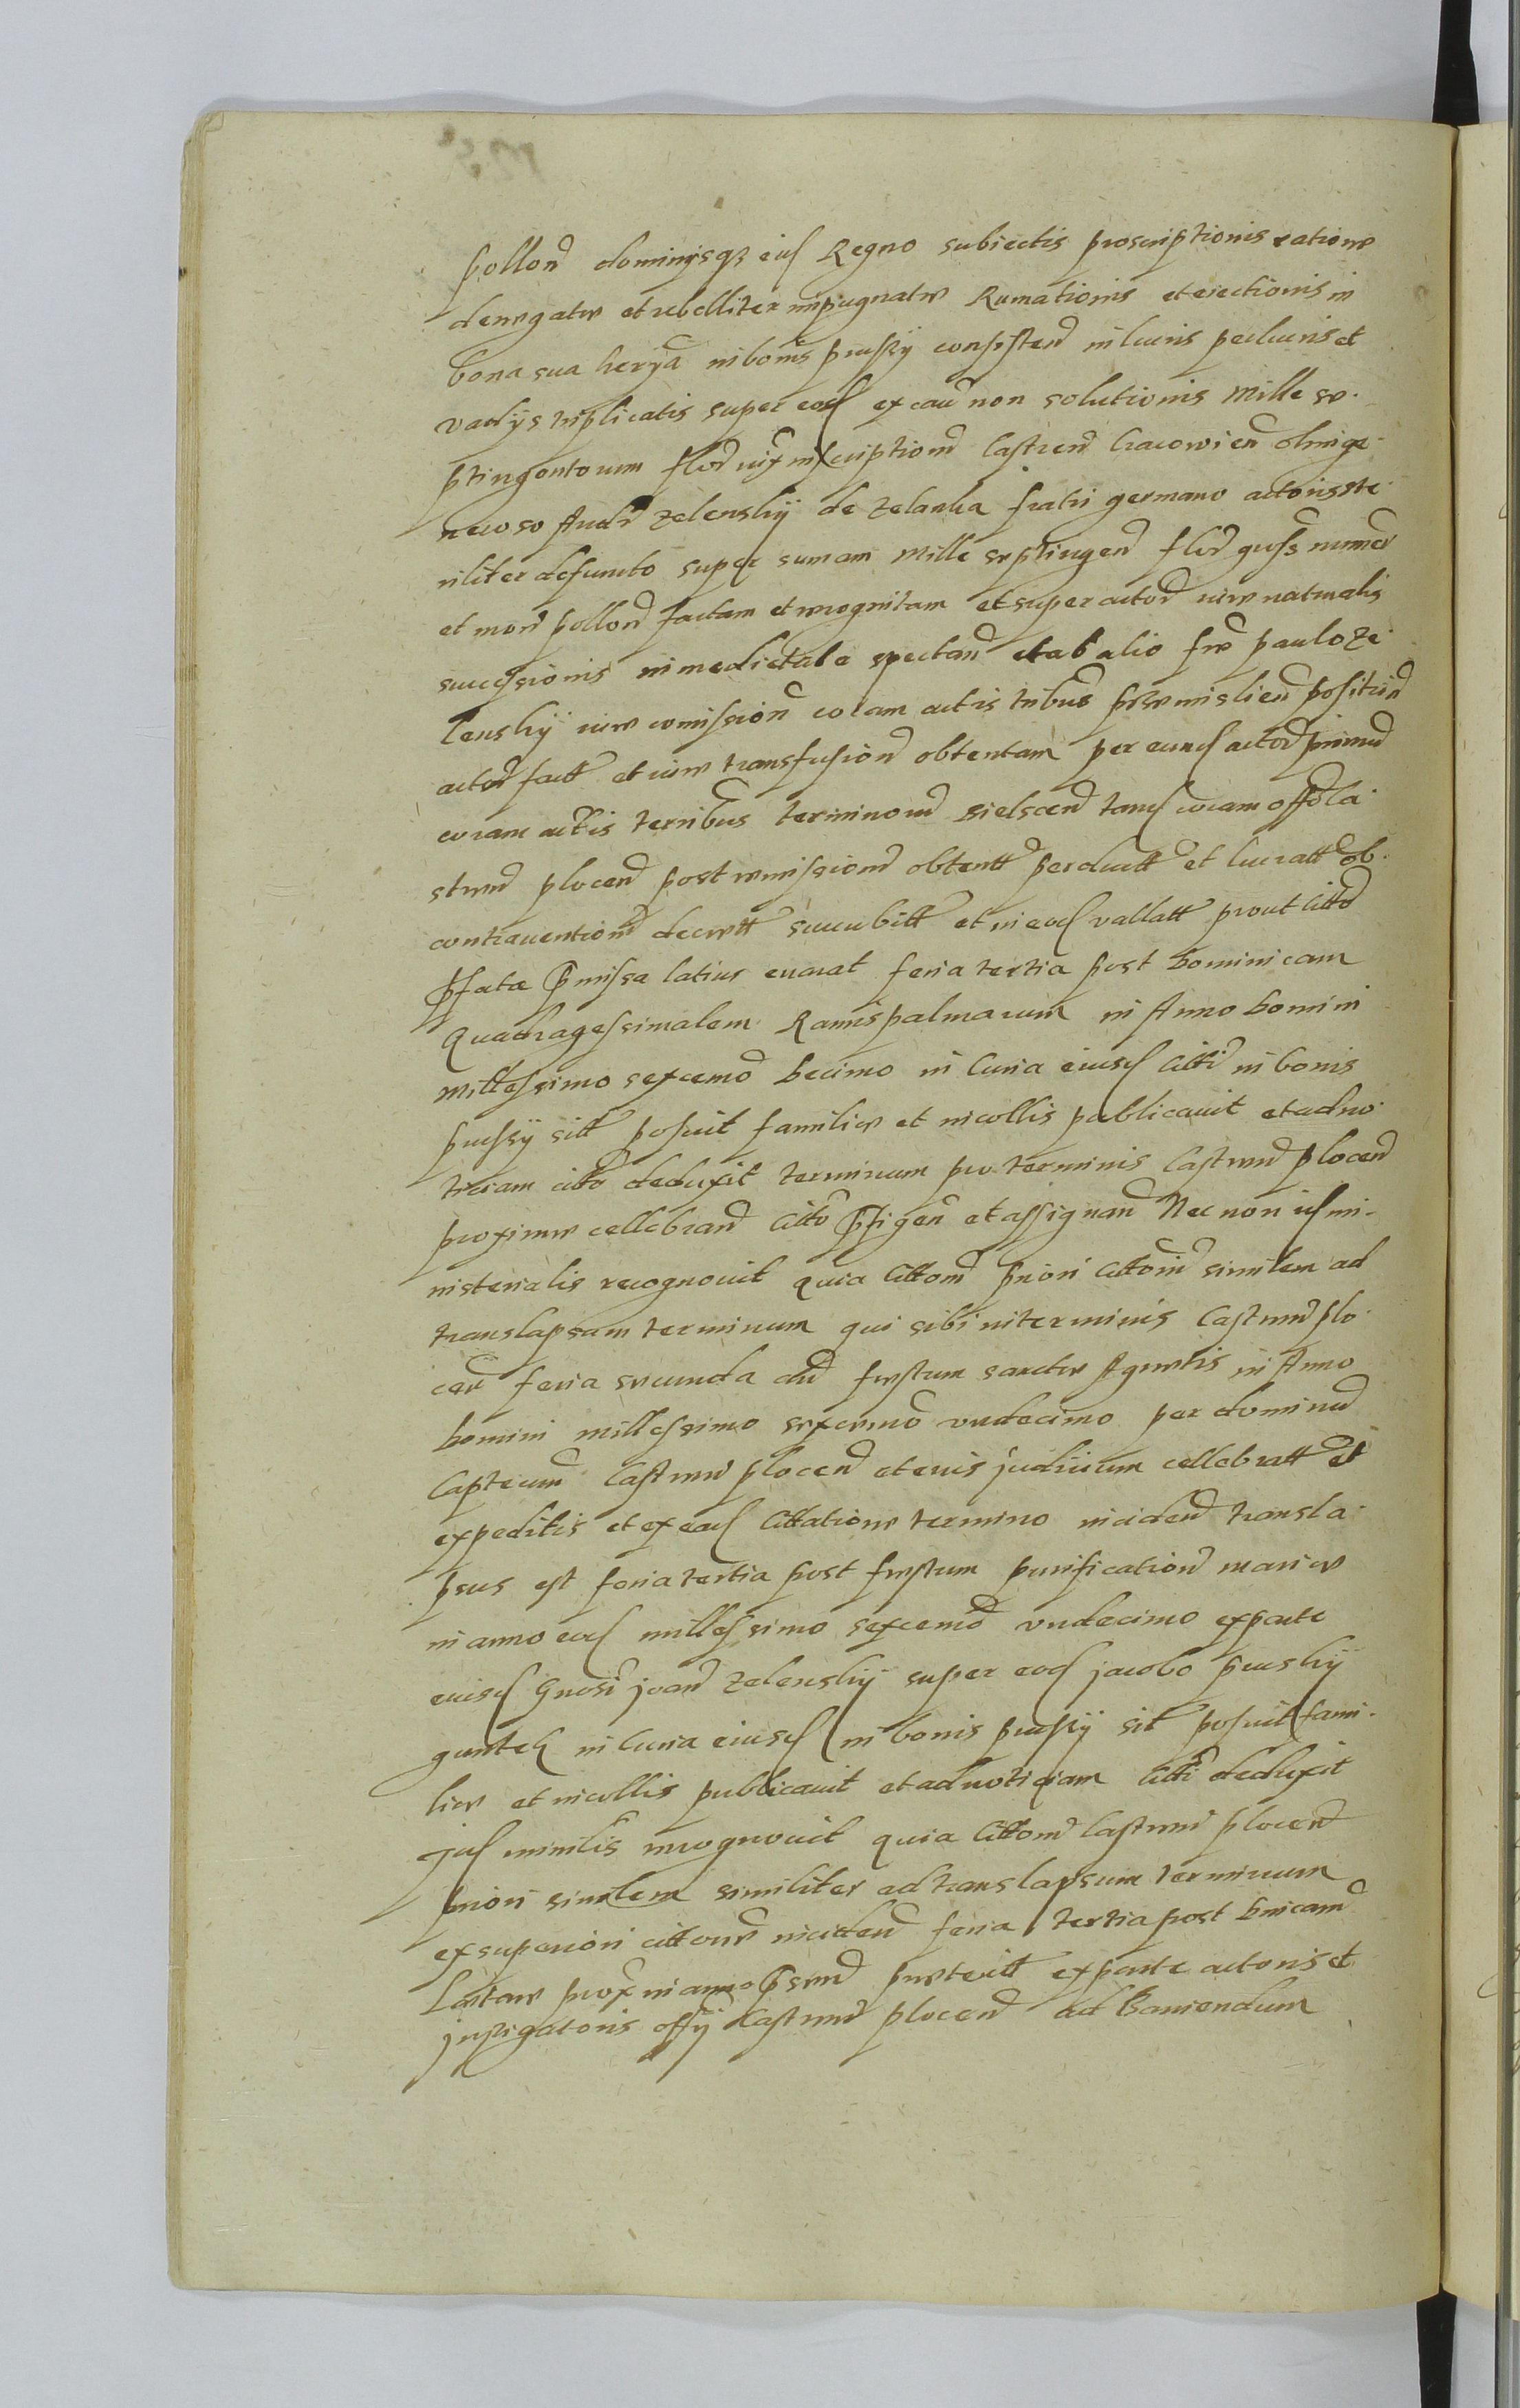 Pollon dominysq eius Regno subiectis proscriptionis ratione
denegatae et rebelliter impugnatae Rumationis et eiectionis in
bona sua heryd in bonis prussy consisten in lucris perlucris et
vadys triplicatis super eod ex cau non solutionis Mille se
ptingentorum flor iux inscription Castren Cracowien olim ge
neroso Andr Zelensky de Zelanka fratri germano actoris ste
riliter defuncto super sumam Mille septingen flor gross numer
et mon pollon factam et recognitam et super actor iure naturalis
successionis in medietate spectan et ab alio fre paulo Ze
lensky iure comission coram actis tribus Premislien positarum
actor fact et iure transfusion obtentam per eund actor primum
coram actis terribus terminorum Bielscen tand coram offo Ca
stren plocen post remission obtentt perductt et lucratt ob
contravention decrett succubitt et in eod vallatt prout citto
pfata pmissa latius enarat feria tertia post Dominicam
Quadragessimalem Ramispalmarum in Anno Domini
Millessimo sexcemo Decimo in Curia eiusd citti in bonis
prussy sitt posuit familiae et incollis publicavit et ad no
ticiam citto deduxit terminum pro terminis Castren plocen
proxime cellebran citto pfigen et assignan Nec non id mi
nisterialis recognovit quia cittom priori cittom similem ad
translapsam terminum qui sibi in terminis Castren plo
cen feria secunda an festum sanctae Agnetis in Anno
Domini millessimo sexcemo undecimo per dominum
Capteum Castren plocen et eius judicium cellebratt et
expeditis et ex ead cittatione termino inciden transla
psus est feria tertia post festum purification mariae
in anno eod millessimo sexcemo undecimo exparte
eiusd Gnosi joan Zelensky super eod jacobo prusky
guntek in curia eiusd in bonis prussy sit posuit fami
liae et incollis publicavit et ad noticiam citti deduxit
jd minilis recognovit quia cittom Castren plocen
priori similem similiter ad translapsum terminum
ex superiori cittone inciden feria tertia post Dnicam
Laetare prox in anno psen preteritt exparte actoris et
jnstigatoris offy Castren plocen ad Baniendum